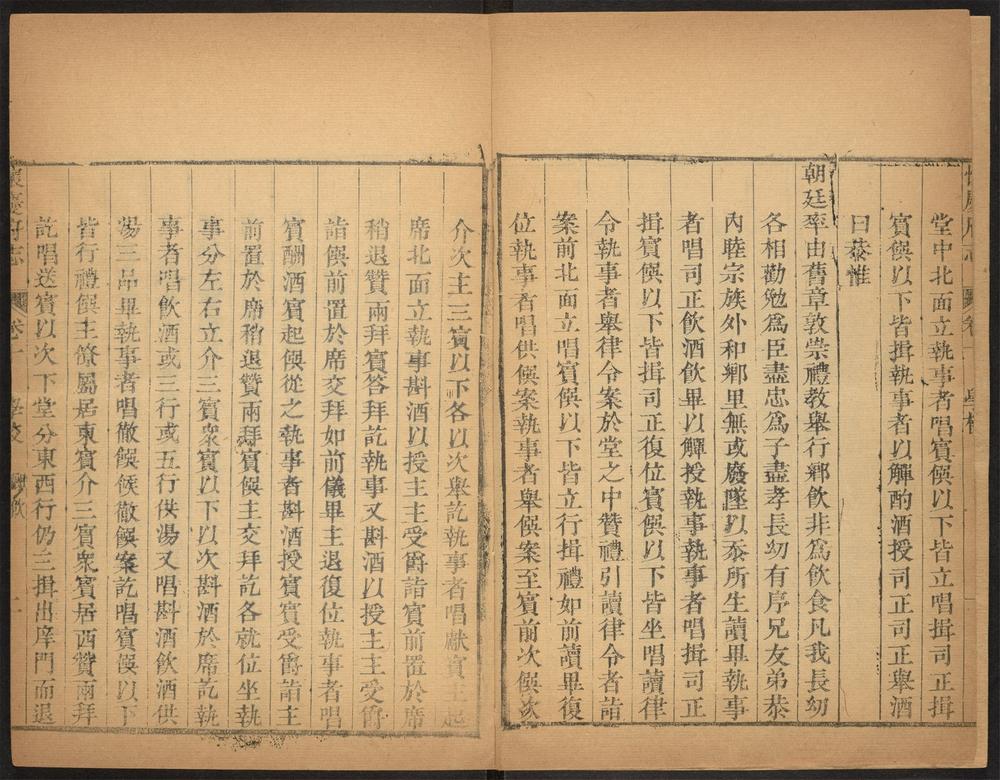 堂中北面立執事者唱賓僎以下皆立唱揖司正揖
賓僎以下皆揖執事者以觶酌酒授司正司正舉酒
曰恭惟
朝廷率由舊章敦崇禮教舉行鄉飲非爲飲食凡我長幼
各相勸勉爲臣盡忠爲子盡孝長幼有序兄友弟恭
內睦宗族外和鄉里無或廢墜以忝所生讀畢執事
者唱司正飲酒飲畢以觶授執事執事者唱揖司正
揖賓僎以下皆揖司正復位賓僎以下皆坐唱讀律
令執事者舉律令案於堂之中贊禮引讀律令者詣
案前北面立唱賓僎以下皆立行揖禮如前讀畢復
位執事者唱供僎案執事者舉僎案至賓前次僎次
介次主三賓以下各以次舉訖執事者唱獻賓主起
席北面立執事斟酒以授主主受爵詣賓前置於席
稍退贊兩拜賓答拜訖執事又斟酒以授主主受爵
詣僎前置於席交拜如前儀畢主退復位執事者唱
賓酬酒賓起僎從之執事者斟酒授賓賓受爵詣主
前置於席稍退贊兩拜賓僎主交拜訖各就位坐執
事分左右立介三賓衆賓以下以次斟酒於席訖執
事者唱飲酒或三行或五行供湯又唱斟酒飲酒供
湯三品畢執事者唱徹僎候徹僎案訖唱賓僎以下
皆行禮僎主僚屬居東賓介三賓衆賓居西贊兩拜
訖唱送賓以次下堂分東西行仍三揖出庠門而退
懷慶府志 卷十 學校